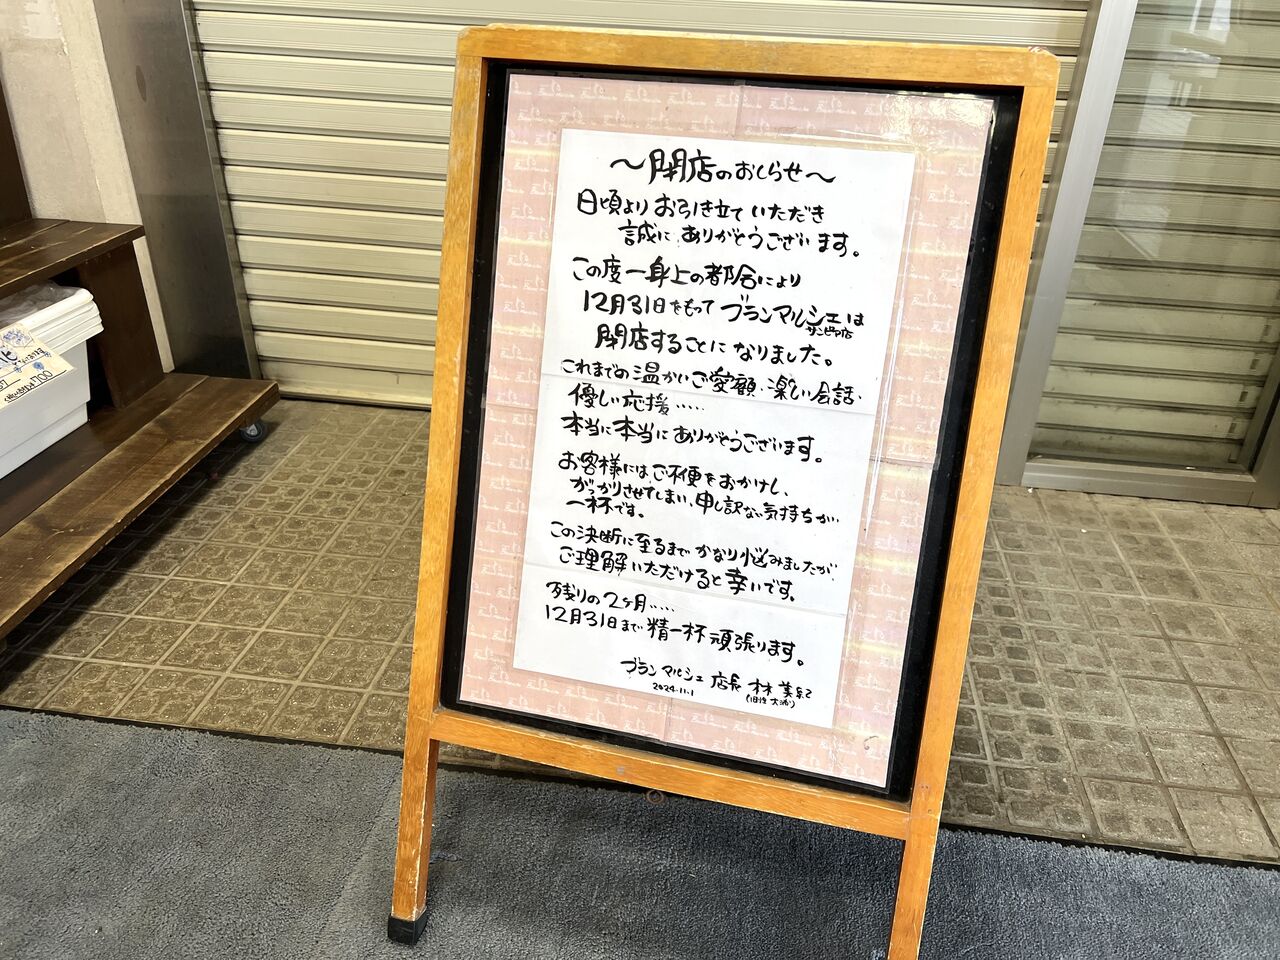 ～閉店のおしらせ～
日頃よりお引き立ていただき
誠に、ありがとうございます。
この度一身上の都合により
12月31日をもって ブランマルシェは
サンピア店
閉店することになりました。
これまでの温かいご愛顧、楽しい会話、
優しい応援……
本当に本当にありがとうございます。
お客様にはご不便をおかけし、
がっかりさせてしまい、申し訳ない気持ちが、
一杯です。
この決断に至るまでかなり悩みましたが、
ご理解いただけると幸いです。
残りの2ヶ月……
12月31日まで精一杯頑張ります。
ブランマルシェ 店長 林 美紀
2024.11.1
(旧姓 大浦)
700